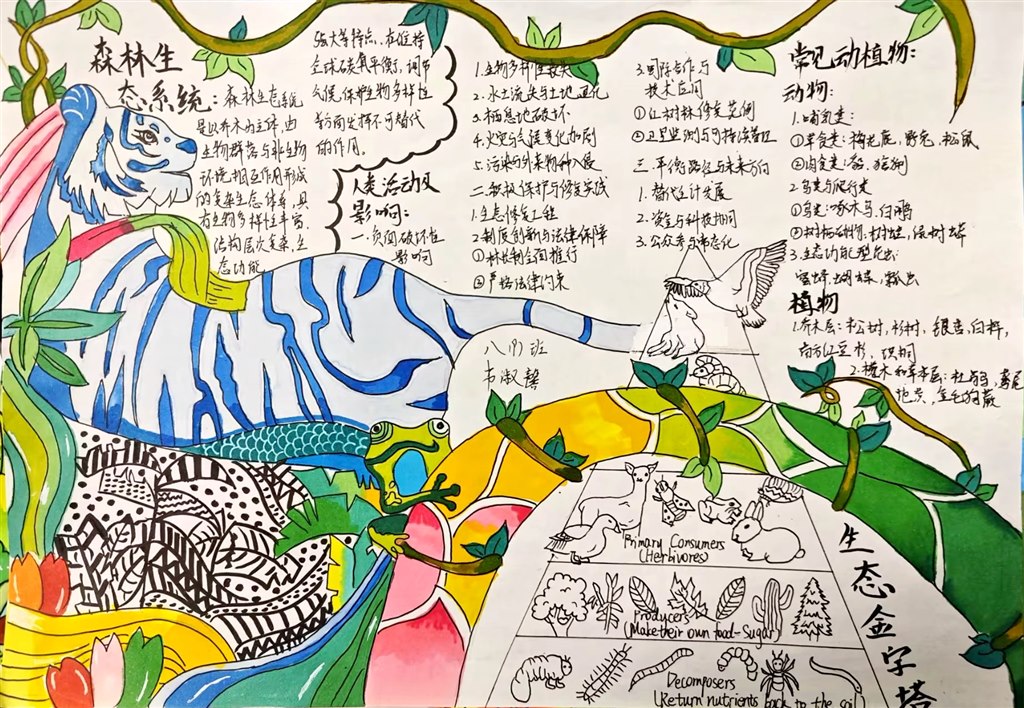 森林生
态系统：森林生态系统
是以乔木为主体，由
生物群落与非生物
环境相互作用形成
的复杂生态体系，具
有生物多样性丰富、
结构层次复杂、生
态功能
强大等特点，在维持
全球碳氧平衡，调节
气候，保护生物多样性
等方面发挥不可替代
的作用。
人类活动及
影响：
一.负面破坏性
影响
1.生物多样性丧失
2.水土流失与土地退化
3.栖息地破坏
4.火灾与气候变化加剧
5.污染与外来物种入侵
二.积极保护与修复实践
1.生态修复工程
2.制度创新与法律保障
①林长制全面推行
②严格法律约束
3.国际合作与
技术应用
①红树林修复范例
②卫星监测与可持续管理
三.平衡路径与未来方向
1.替代生计发展
2.资金与科技协同
3.公众参与常态化
八(9)班
韦淑馨
常见动植物：
动物：
1.哺乳类：
①草食类：梅花鹿，野兔，松鼠
②肉食类：
2.鸟类与爬行类
①鸟类：啄木鸟，白鹇
②树栖动物：树蛙，绿树蟒
3.生态功能型昆虫：
蜜蜂，蝴蝶，瓢虫
植物
1.乔木层：松树，杉树，银杏，白桦，
南方红豆杉，珙桐
2.灌木和草本层：杜鹃，鸢尾
地衣、金毛狗蕨
生态金字塔
Primary Consumers
(Herbivores)
Producers
(Make their own food-Sugar)
Decomposers
(Return nutrients back to the soil)